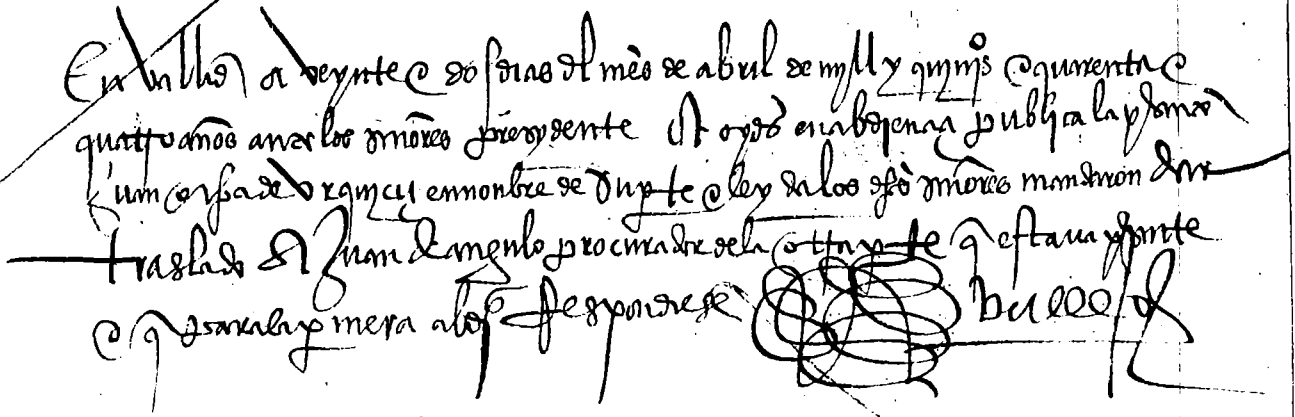 En Vallid a veynte e dos dias del mes de abril de mill y quiºs e quarenta e
quatro años ante los señores presydente oydores en abdiencia publica la presento
Juan de Urquiçu en nonbre de su pte e leyda los dhos señores mandaron dar
traslado a Juan de angulo procurador dela otra pte q estava presente
e q para la primera abdiª Responda